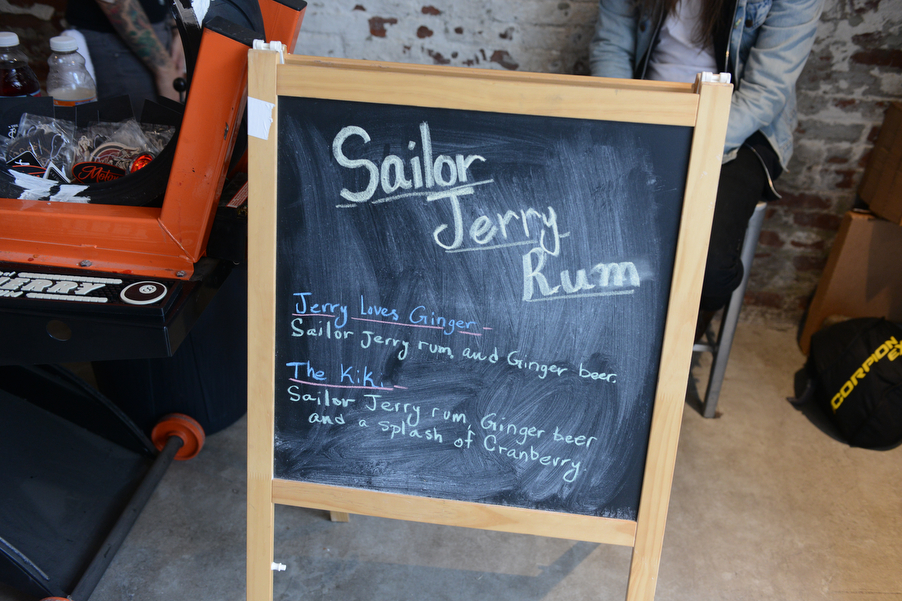 Sailor
Jerry
Rum
Jerry Loves Ginger -
Sailor Jerry rum, and Ginger beer.
The Kiki -
Sailor Jerry rum, Ginger beer
and a splash of Cranberry
SCORPION